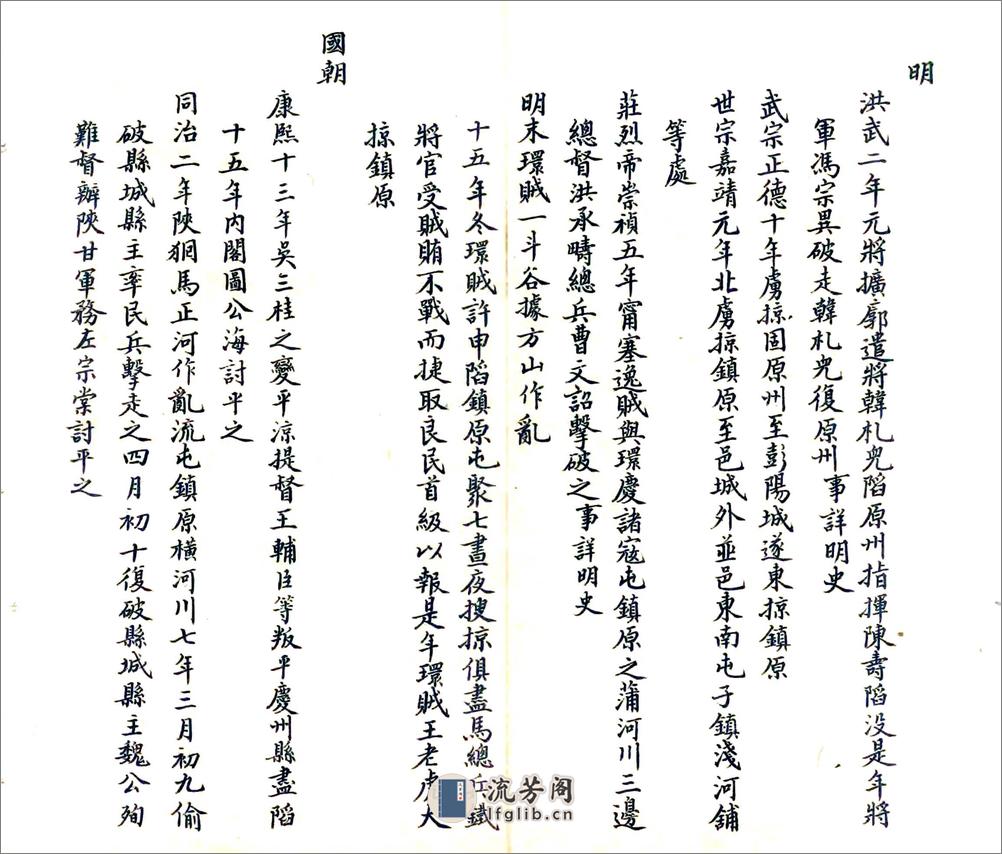 明
洪武二年元將擴廓遣將韓札兒陷原州指揮陳壽陷没是年將
軍馮宗異破走韓札兒復原州事詳明史
武宗正德十年虜掠固原州至彭陽城遂東掠鎮原
世宗嘉靖元年北虜掠鎮原至邑城外並邑東南屯子鎮淺河舖
等處
莊烈帝崇禎五年甯塞逸賊與環慶諸寇屯鎮原之蒲河川三邊
總督洪承疇總兵曹文詔擊破之事詳明史
明末環賊一斗谷據方山作亂
十五年冬環賊許申陷鎮原屯聚七晝夜搜掠俱盡馬總兵鐵
將官受賊賄不戰而捷取良民首級以報是年環賊王老虎大
掠鎮原
國朝
康熙十三年吳三桂之變平涼提督王輔臣等叛平慶州縣盡陷
十五年内閣圖公海討平之
同治二年陝狪馬正河作亂流屯鎮原橫河川七年三月初九偷
破縣城縣主率民兵擊走之四月初十復破縣城縣主魏公殉
難督辦陝甘軍務左宗棠討平之
流芳阁
lfglib.cn